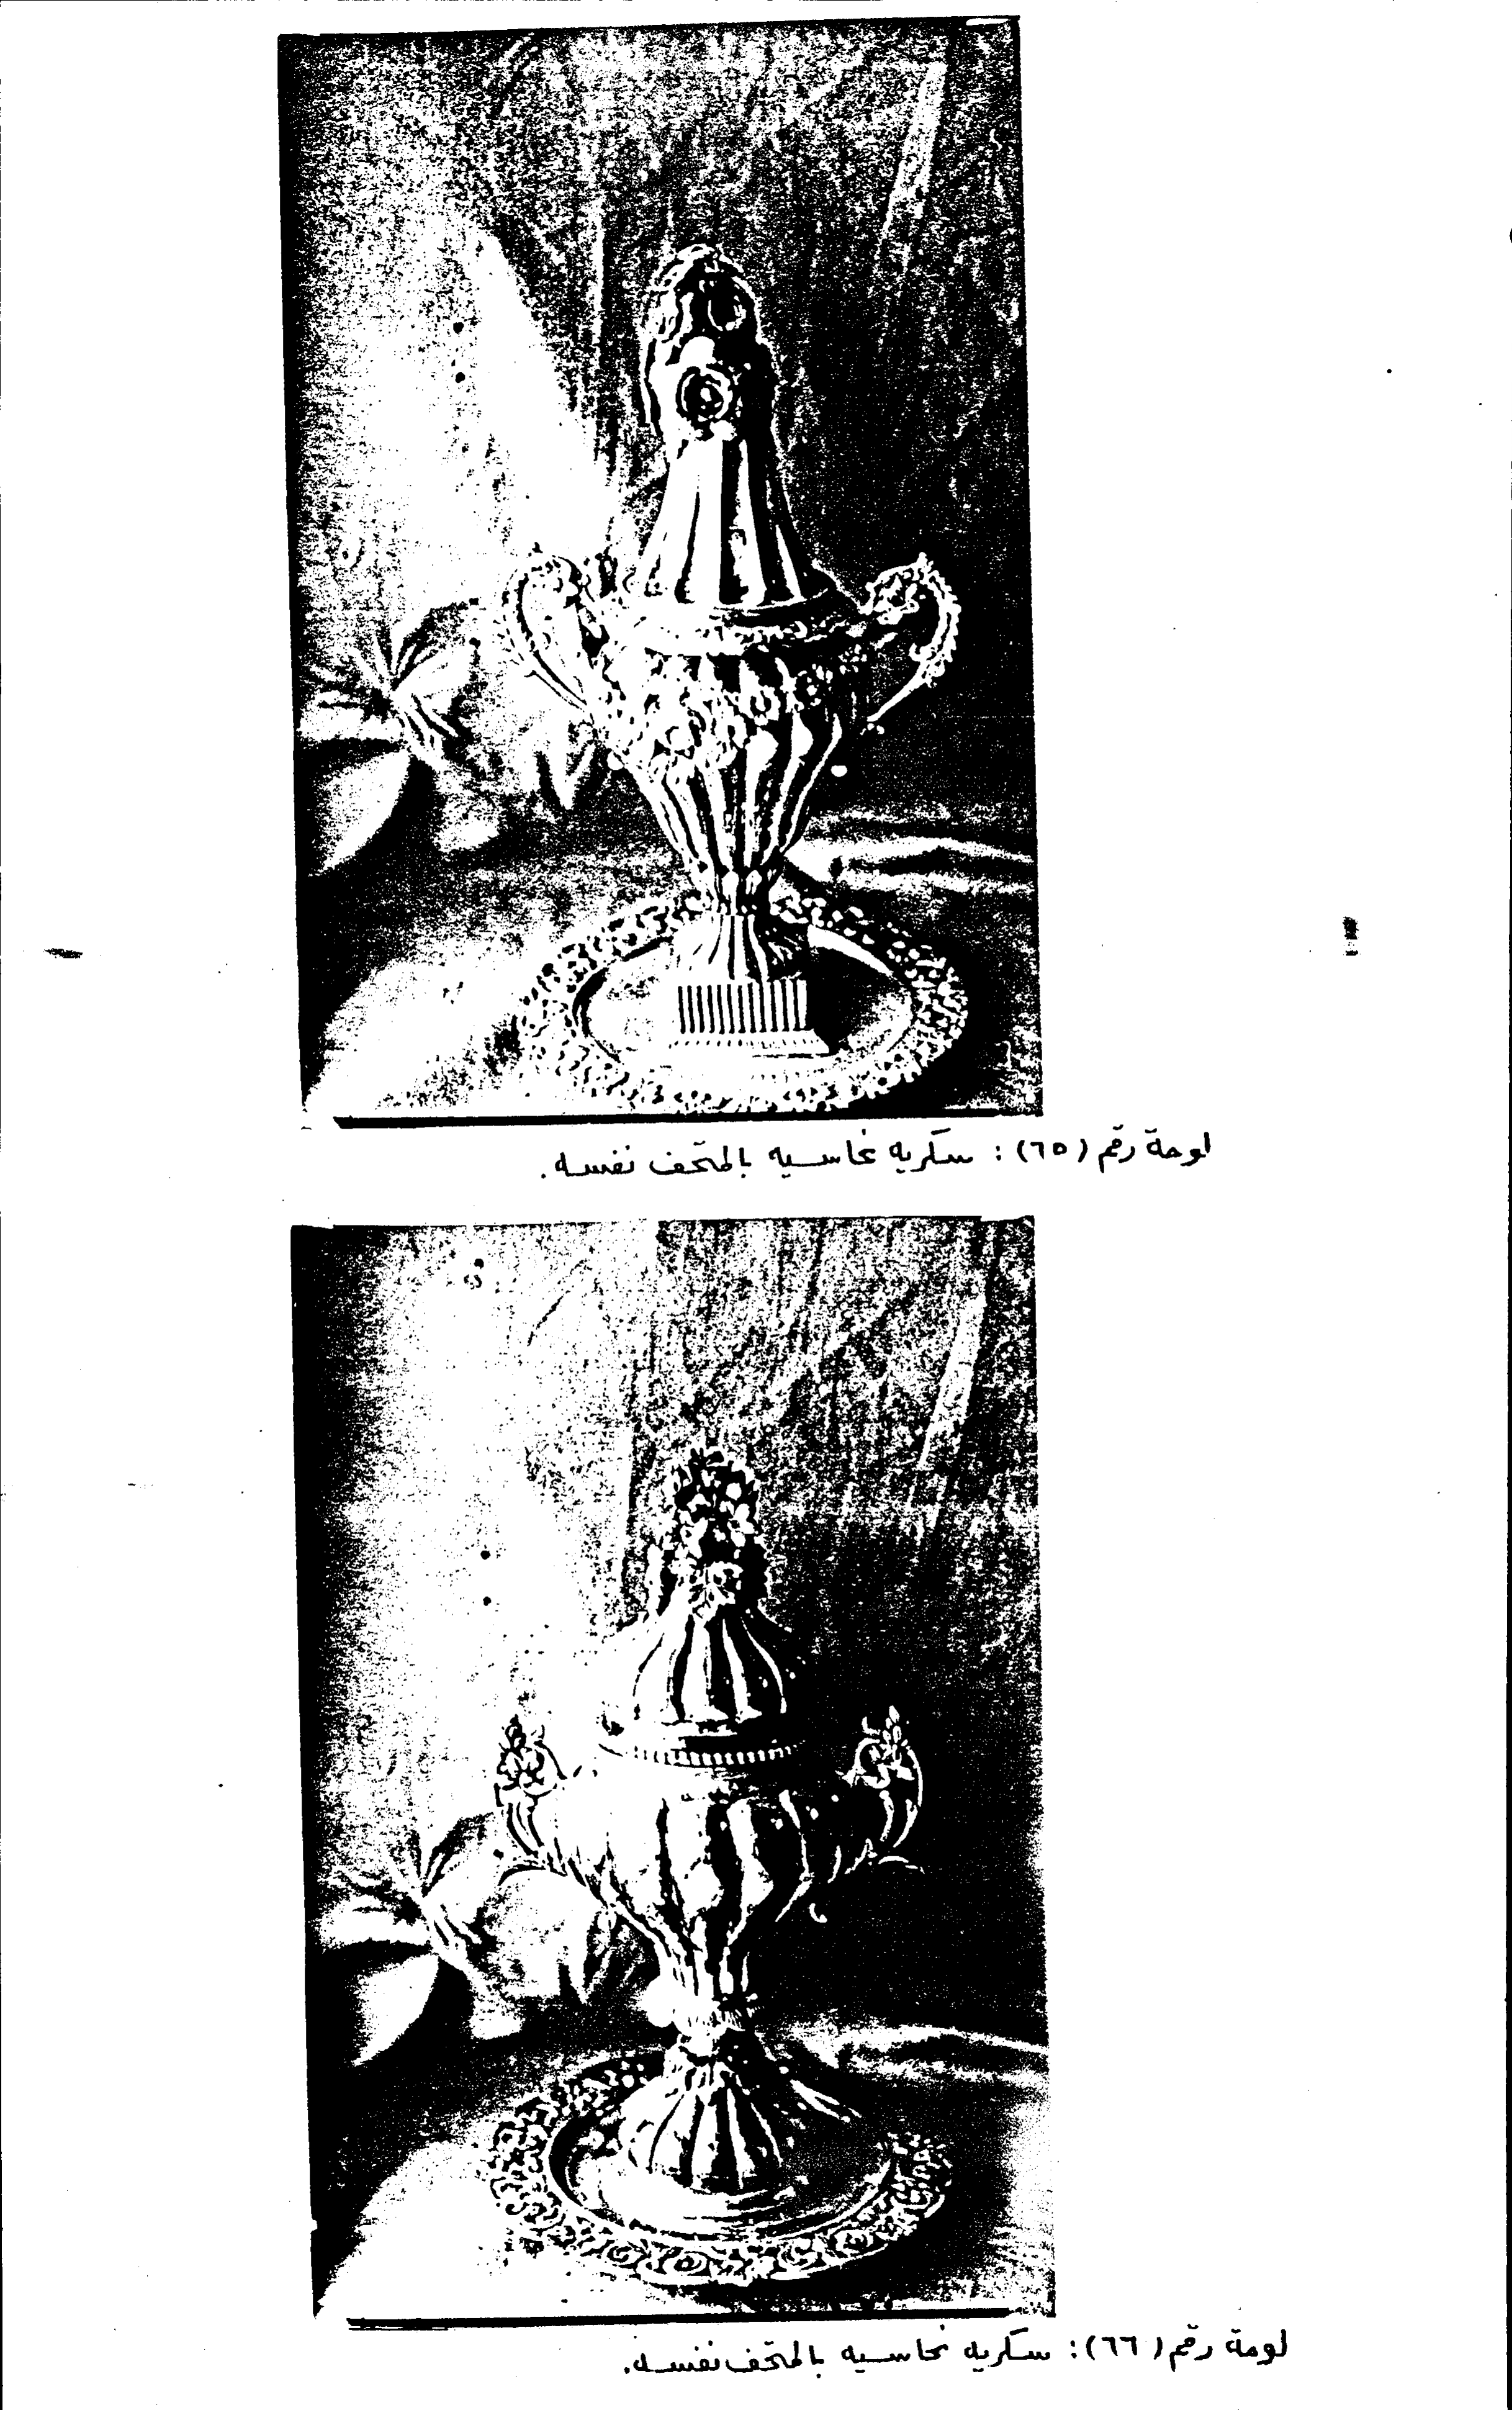 لوحة رقم (٦٥) : سكريه نحاسيه بالمتحف نفسه .
لوحة رقم (٦٦) : سكريه نحاسيه بالمتحف نفسه .